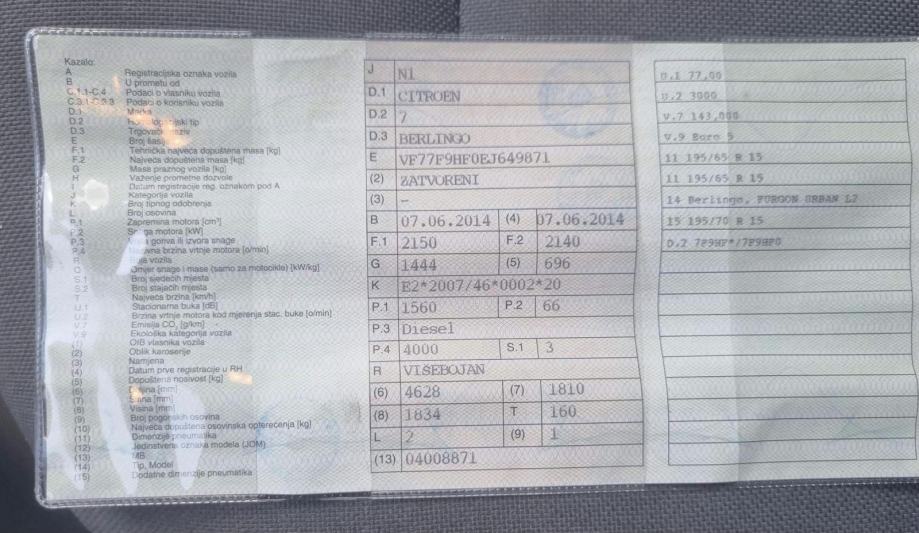 Kazalo:
A Registracijska oznaka vozila
B U prometu od
C.1.1-C.4 Podaci o vlasniku vozila
C.3.1-C.3.3 Podaci o korisniku vozila
D.1 Marka
D.2
D.3
E Broj šasije
F.1 Tehnička najveća dopuštena masa [kg]
F.2 Najveća dopuštena masa [kg]
G Masa praznog vozila [kg]
H Važenje prometne dozvole
I Datum registracije reg. oznakom pod A
J Kategorija vozila
K Broj tipnog odobrenja
L Broj osovina
P.1 Zapremina motora [cm³]
P.2 Snaga motora [kW]
P.3 goriva ili izvora snage
P.4 brzina vrtnje motora [o/min]
R Boja vozila
Q Omjer snage i mase (samo za motocikle) [kW/kg]
S.1 Broj sjedećih mjesta
S.2 Broj stajaćih mjesta
T Najveća brzina [km/h]
U.1 Stacionarna buka [dB]
U.2 Brzina vrtnje motora kod mjerenja stac. buke [o/min]
V.7 Emisija CO₂ [g/km]
V.9 Ekološka kategorija vozila
(1) OIB vlasnika vozila
(2) Oblik karoserije
(3) Namjena
(4) Datum prve registracije u RH
(5) Dopuštena nosivost [kg]
(6) Dužina [mm]
(7) Širina [mm]
(8) Visina [mm]
(9) Broj pogonskih osovina
(10) Najveća dopuštena osovinska opterećenja [kg]
(11) Dimenzije pneumatika
(12) Jedinstvena oznaka modela (JOM)
(13) MB
(14) Tip, Model
(15) Dodatne dimenzije pneumatika
J N1
D.1 CITROEN
D.2 7
D.3 BERLINGO
E VF77F9HF0EJ649871
(2) ZATVORENI
(3) –
B 07.06.2014 (4) 07.06.2014
F.1 2150 F.2 2140
G 1444 (5) 696
K E2*2007/46*0002*20
P.1 1560 P.2 66
P.3 Diesel
P.4 4000 S.1 3
R VIŠEBOJAN
(6) 4628 (7) 1810
(8) 1834 T 160
L 2 (9) 1
(13) 04008871
U.1 77,00
U.2 3000
V.7 143,000
V.9 Euro 5
11 195/65 R 15
11 195/65 R 15
14 Berlingo, FURGON URBAN L2
15 195/70 R 15
D.2 7F9HF*/7F9HF0